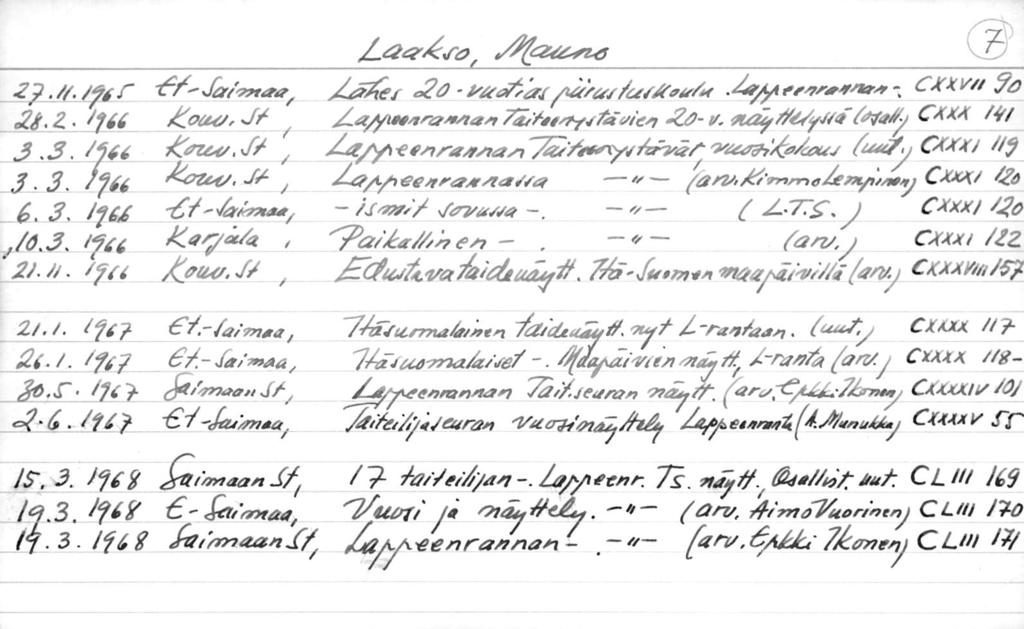 Laakso, Mauno 7
27.11.1965 Et-Saimaa, Lähes 20-vuotias piirustuskoulu. Lappeenrannan-, CXXVII 90
28.2.1966 Kouv.St, Lappeenrannan Taiteenystävien 20-v. näyttelyssä (osall.) CXXX 141
3.3.1966 Kouv.St, Lappeenrannan Taiteenystävät, vuosikokous (uut.) CXXXI 119
3.3.1966 Kouv.St, Lappeenrannassa -"- (arv. Kimmo Lempinen) CXXXI 120
6.3.1966 Et-Saimaa, -ismit sovussa-. -"- (L.T.S.) CXXXI 120
10.3.1966 Karjala, Paikallinen-. -"- (arv.) CXXXI 122
21.11.1966 Kouv.St, Edustava taidenäytt. Itä-Suomen maapäivillä (arv.) CXXXVIII 157
21.1.1967 Et.-Saimaa, Itäsuomalainen taidenäytt. nyt L-rantaan. (uut.) CXXXX 117
26.1.1967 Et-Saimaa, Itäsuomalaiset-. Maapäivien näytt, L-ranta (arv.) CXXXX 118-
30.5.1967 Saimaan St, Lappeenrannan Tait.seuran näytt. (arv. Erkki Ikonen) CXXXXIV 101
2.6.1967 Et-Saimaa, Taiteilijaseuran vuosinäyttely Lappeenranta (A. Munukka) CXXXXV 55
15.3.1968 Saimaan St, 17 taiteilijan-. Lappeenr. Ts. näytt., Osallist. uut. CLIII 169
19.3.1968 E-Saimaa, Vuosi ja näyttely. -"- (arv. Aimo Vuorinen) CLIII 170
19.3.1968 Saimaan St, Lappeenrannan-. -"- (arv. Erkki Ikonen) CLIII 171